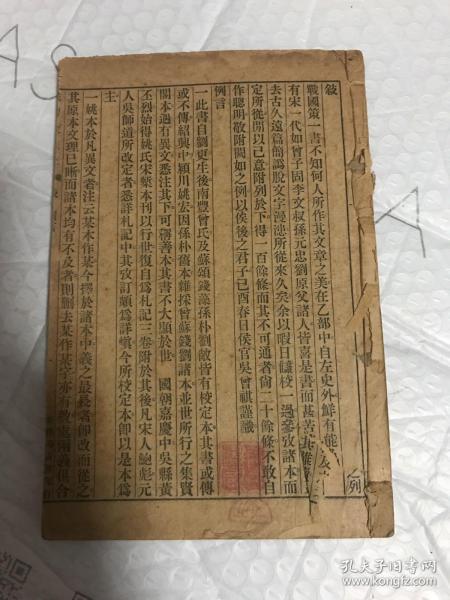 敍
戰國策一書不知何人所作其文章之美在乙部中自左史外鮮有能
有宋一代如曾子固李文叔孫元忠劉原父諸人皆喜是書而甚苦其難
去古久遠篇簡爲脫文字漫漶所從來久矣余以暇日讎校一過參攷諸本而
定所從間以己意附列於下得一百餘條而其不可通者尙二十餘條不敢自
作聰明敬附闕如之例以俟後之君子己酉春日侯官吳曾祺謹識
例言
一此書自劉更生後南豐曾氏及蘇頌錢藻孫朴劉敞皆有校定本其書或傳
或不傳紹興中潁川姚宏因孫朴舊本雜採曾蘇錢劉諸本並世所行之集賢
閣本遇有異文悉注其下可稱善本其書不大顯於世 國朝嘉慶中吳縣黃
丕烈始得姚氏宋槧本刊以行世復自爲札記三卷附於其後凡宋人鮑彪元
人吳師道所改定者悉詳札記中其攷訂頗爲詳愼今所校定本卽以是本爲
主
一姚本於凡異文者注云某本作某今擇於諸本中義之最長者卽改而從之
其原本文理已晰而諸本均有不及者則刪去某作某字亦有數處兩義俱合
例
AS
A
孔夫子旧书网
www.kongfz.com